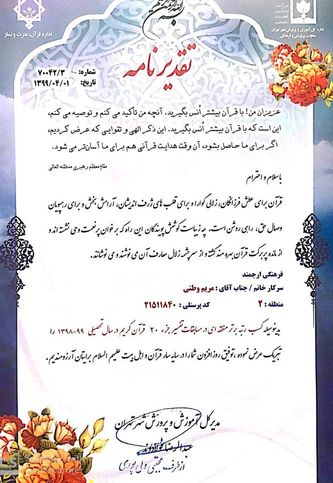 بسم الله الرحمن الرحیم
اداره کل آموزش و پرورش شهر تهران
معاونت پرورشی و فرهنگی
اداره قرآن، عترت و نماز
شماره: ۷۰۰۴۲/۳
تاریخ: ۱۳۹۹/۰۴/۰۱
تقدیرنامه
عزیزان من! با قرآن بیشتر اُنس بگیرید. آنچه من تأکید می کنم و توصیه می کنم،
این است که با قرآن بیشتر اُنس بگیرید. این ذکر الهی و تقوایی که عرض کردیم،
اگر برای ما حاصل بشود، آن وقت هدایت قرآنی هم برای ما آسان‌تر می شود.
مقام معظم رهبری مدظله العالی
با سلام و احترام
قرآن برای عطش فرزانگان، زلالی گوارا و برای قلب های ژرف اندیشان، آرامش بخش و برای رهپویان
وصال حق، راهی روشن است، چه زیباست کوشش پویندگان این راه که بر خوان پر نعمت وحی نشسته اند و
از مائده پربرکت قرآن بهره مند گشته و از سرچشمه زلال معارف آن می نوشند و می نوشانند.
فرهنگی ارجمند
سرکار خانم / جناب آقای : مریم وطنی
منطقه : ۲ کد پرسنلی : ۲۱۵۱۱۸۴۰
بدینوسیله کسب رتبه برتر منطقه ای در مسابقات تفسیر جزء ۲۰ قرآن کریم در سال تحصیلی ۹۹-۱۳۹۸ را
تبریک عرض نموده، توفیق روز افزون شما را در سایه سار قرآن و اهل بیت علیهم السلام برایتان آرزومندیم.
مدیر کل آموزش و پرورش شهر تهران
عبدالرضا
از طرف